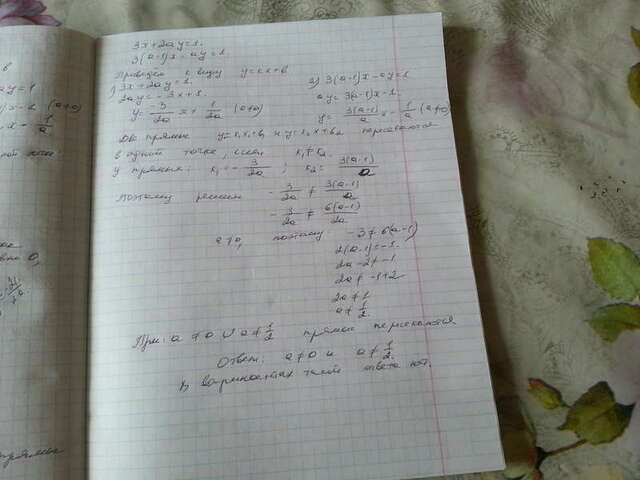 в
3x+2ay=1.
ay=1
3(a-1)x-ay=1.
Приведем к виду y=kx+b
1) 3x+2ay=1
2) 3(a-1)x-ay=1
2ay=-3x+1
ay=3(a-1)x-1
y=-3/2a x+1/2a (a≠0)
y=3(a-1)/a x-1/a (a≠0)
Две прямые y=k₁x+b₁ и y=k₂x+b₂ пересекаются
в одной точке, если k₁≠k₂.
У прямых: k₁=-3/2a ; k₂=3(a-1)/a
Поэтому решим -3/2a≠3(a-1)/a
-3/2a≠6(a-1)/2a
a≠0, поэтому -3≠6(a-1)
2(a-1)≠-1.
2a-2≠-1
2a≠-1+2
2a≠1
a≠1/2.
При: a≠0 и a≠1/2 прямые пересекаются
Ответ: a≠0 и a≠1/2.
В вариантах такого ответа нет.
прямые